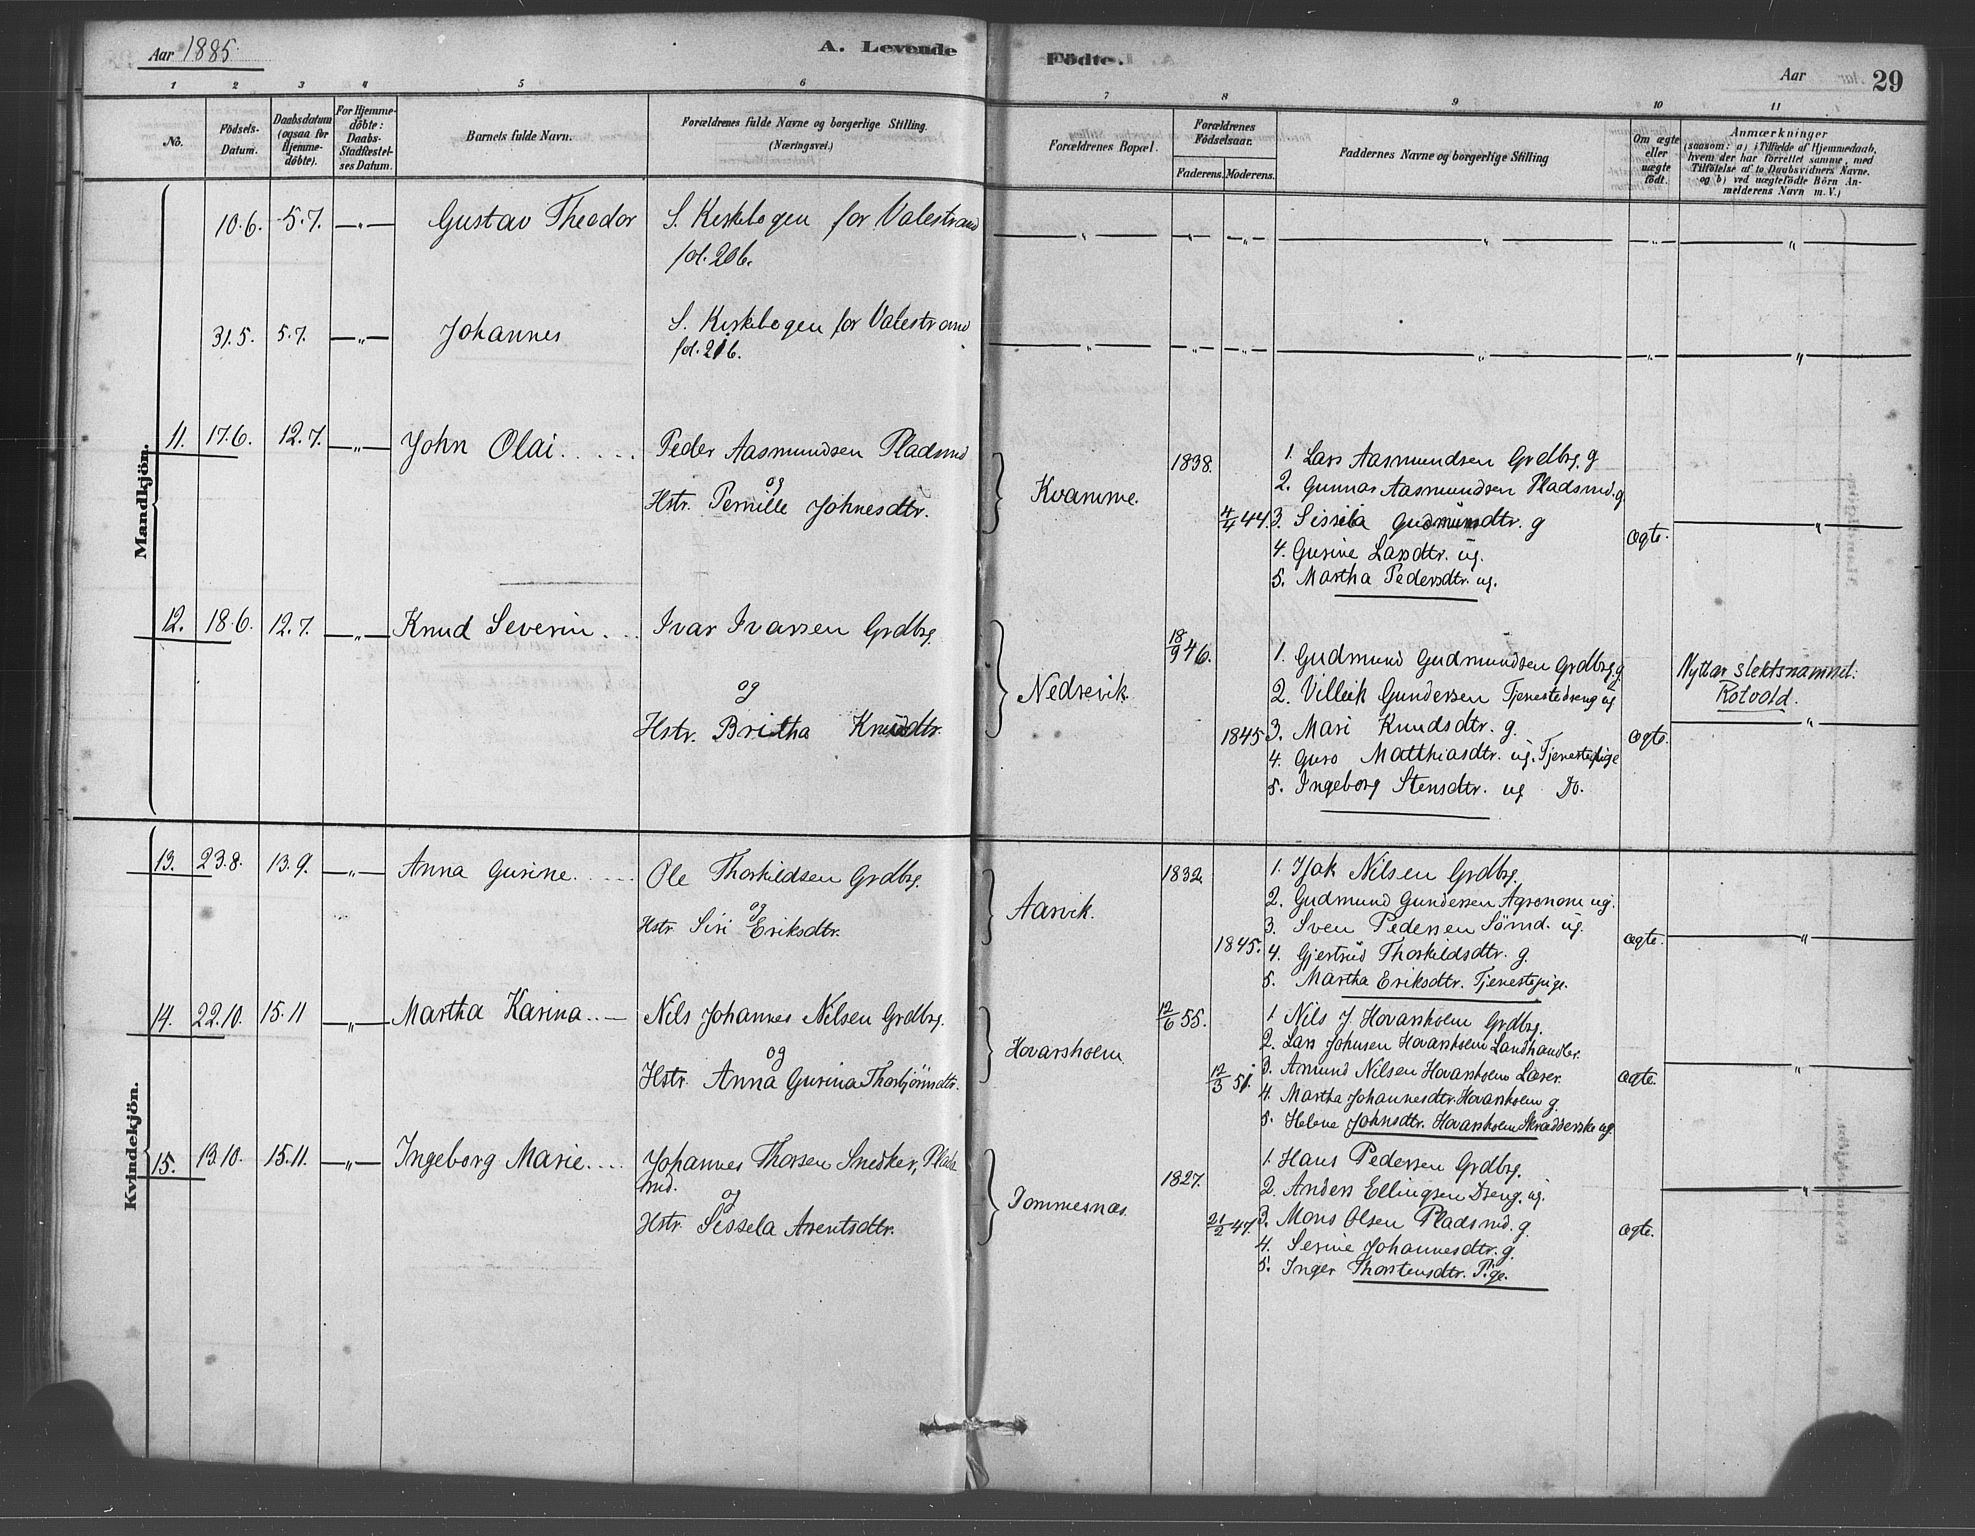 Aar 1885.
A. Levende Födte.
Aar 29
1 2 3 4 5 6 7 8 9 10 11
No.
Födsels-Datum.
Daabsdatum (ogsaa for Hjemme-döbte).
For Hjemme-döbte: Daabs-Stadfæstel-ses Datum.
Barnets fulde Navn.
Forældrenes fulde Navne og borgerlige Stilling.
(Næringsvei.)
Forældrenes Bopæl.
Forældrenes Födselsaar.
Faderens. Moderens.
Faddernes Navne og borgerlige Stilling
Om ægte eller uægte födt.
Anmærkninger
(saasom: a) i Tilfælde af Hjemmedaab,
hvem der har forrettet samme, med
Tilföielse af to Daabsvidners Navne.
og b) ved uægtefödte Börn An-
melderens Navn m. V.)
Mandkjön.
10.6. 5.7. —„— Gustav Theodor S. Kirkebogen for Valestrand
fol. 20b.
31.5. 5.7. —„— Johannes S. Kirkebogen for Valestrand
fol. 21b.
11. 17.6. 12.7. —„— John Olai. Peder Aasmundsen Pladsmd
og
Hstr. Pernille Johnesdtr.
Kvamme.
1838.
4/4 44.
1. Lars Aasmundsen Grdbrg. g
2. Gunnar Aasmundsen Pladsmd. g.
3. Sissela Gudmundtr. g
4. Gurine Larsdtr. ug.
5. Martha Pedersdtr. ug.
ægte.
12. 18.6. 12.7. —„— Knud Severin. Ivar Ivarsen Grdbrg.
og
Hstr. Britha Knudsdtr.
Nedrevik
18/9 46.
1845
1. Gudmund Gudmundsen Grdbrg. g
2. Villeik Gundersen Tjenestedreng ug
3. Mari Knudsdtr. g.
4. Guro Matthiasdtr. ug. Tjenestepige
5. Ingeborg Stensdtr. ug Do.
ægte.
Nyttar slektsnamnet:
Rotvold.
Kvindekjön.
13. 23.8. 13.9. —„— Anna Gurine. Ole Thorkildsen Grdbrg.
og
Hstr. Siri Eriksdtr.
Aarvik.
1832.
1845.
1. Isak Nilsen Grdbrg.
2. Gudmund Gundersen Agronom ug.
3. Sven Pedersen Sömd. ug.
4. Gjertrud Thorkildsdtr. g.
5. Martha Eriksdtr. Tjenestepige.
ægte.
14. 22.10. 15.11 —„— Martha Karina. Nils Johannes Nilsen Grdbrg.
og
Hstr. Anna Gurina Thorbjörnsdtr.
Hovarsholm
12/6 55.
12/3 51.
1. Nils J. Hovarsholm Grdbrg.
2. Lars Johnsen Hovarsholm Landhandler.
3. Amund Nilsen Hovarsholm Lærer.
4. Martha Johannesdtr. Hovarsholm g.
5. Helene Johnsdtr. Hovarsholm Skrædderske ug.
ægte.
15. 13.10. 15.11. —„— Ingeborg Marie. Johannes Thorsen Snedker, Plads
md.
og
Hstr. Sissela Arentsdtr.
Tommesnæs.
1827.
21/2 47.
1. Hans Pedersen Grdbrg.
2. Anders Ellingsen Dreng. ug.
3. Mons Olsen Pladsmd. g.
4. Serine Johannesdtr. g.
5. Inger Thorstensdtr. Pige.
ægte.